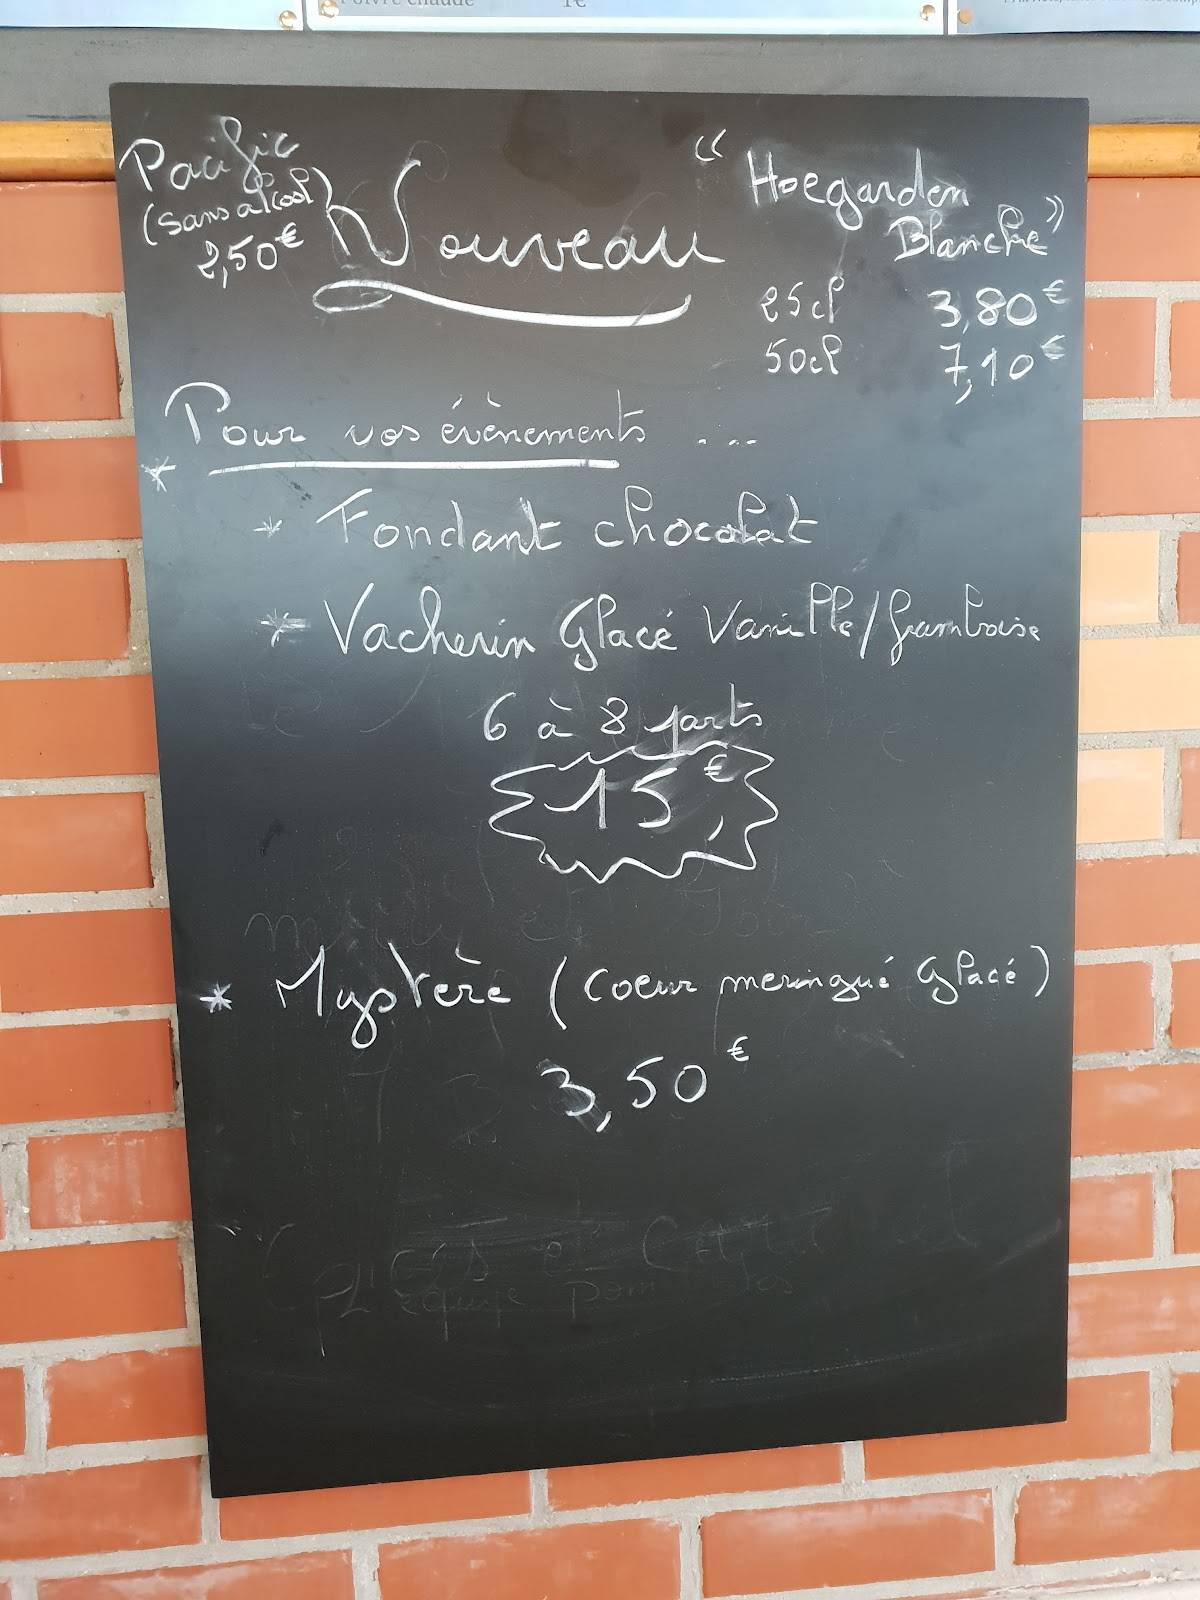 Poivre chaude 1€
Pacific
(sans alcool)
2,50€
Nouveau
"Hoegarden
Blanche"
25cl 3,80€
50cl 7,10€
* Pour vos évènements ....
* Fondant chocolat
* Vacherin Glacé Vanille/framboise
6 à 8 parts
15,€
* Mystère (Coeur meringué Glacé)
3,50€